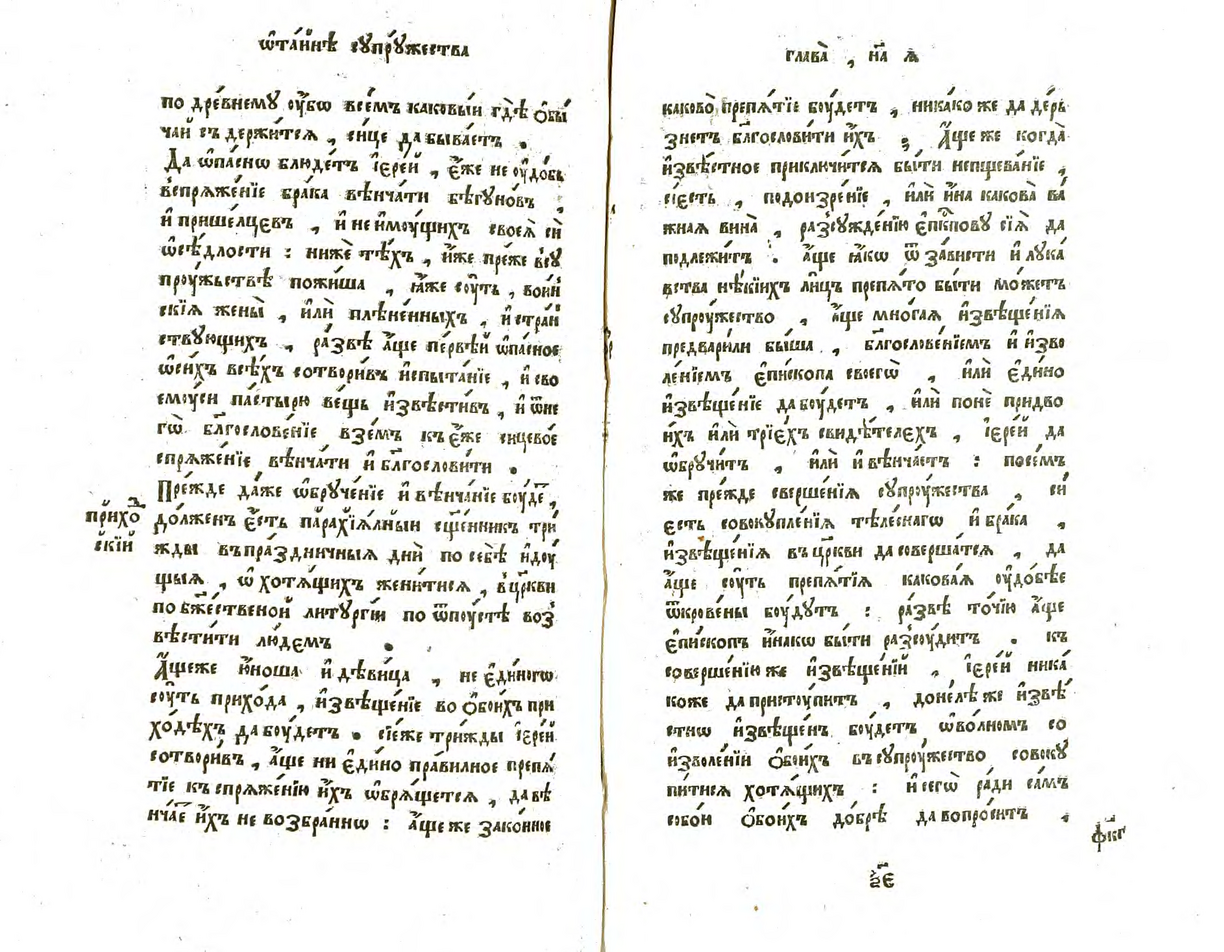 ѿтаи́нѣ сꙋпрꙋ́жества
по дре́внемꙋ оу҆́бѡ всѣ́мъ каковы́и гдѣ̀ ѻ҆бы
чай съдержи́тсѧ , си́це да быва́етъ .
Да ѡ҆па́снѡ блюде́тъ і҆ере́й , є҆́же не оу҆до́бь
вспрѧже́нїе бра́ка вѣнча́ти бѣгꙋно́въ ,
и҆ пришелцевъ , и҆ не и҆мꙋ́щихъ своеѧ̀ си
ѡ҆сѣ́длости : нижѐ тѣ́хъ , и҆̀же пре́же всꙋ
прꙋ́жьствѣ пожи́ша , ꙗ҆́же сꙋ́ть , во́ин
скїѧ жены̀ , и҆лѝ плѣне́нныхъ , и҆ стран
ствꙋющихъ , ра́звѣ а҆́ще пе́рвѣй ѡ҆па́сное
ѡ҆си́хъ всѣ́хъ сотвори́въ и҆спыта́нїе , и҆ сво
емꙋ́си па́стырю ве́щь и҆звѣсти́въ , и҆ ѿне
гѡ̀ бл҃гослове́нїе взе́мъ къ є҆́же сицево́е
спрѧже́нїе вѣнча́ти и҆ бл҃гослови́ти .
Пре́жде да́же ѡ҆брꙋче́нїе и҆ вѣнча́нїе бꙋ́де ,
до́лженъ є҆́сть парахїѧ́лный сщ҃е́нникъ три
прихо́
скїй
жды въ пра́здничныѧ днѝ по себѣ̀ и҆дꙋ́
щыѧ , ѡ҆ хотѧ́щихъ жени́тисѧ , в цр҃кви
по бж҃е́ственой литꙋргі́и по ѿпꙋ́стѣ воз
вѣсти́ти лю́демъ
А҆́щеже ю҆́ноша и҆ дѣви́ца , не є҆ди́ногѡ
сꙋ́ть прихо́да , и҆звѣще́нїе во ѻ҆бои́хъ при
хо́дѣхъ да бꙋ́детъ . сїе́же три́жды і҆ере́й
сотвори́въ , а҆́ще ни є҆ди́но пра́вилное препѧ́
тїе къ спрѧже́нїю и҆́хъ ѡ҆брѧ́щетсѧ , да вѣ
нча́е и҆́хъ не возбра́ннѡ : а҆́ще же зако́нное
глава̀ , на ѧ
каково̀ препѧ́тїе бꙋ́детъ , ника́ко же да де́рь
знетъ бл҃гослови́ти и҆́хъ ; А҆́ще же когда̀
и҆звѣ́стное приключи́тсѧ бы́ти непщева́нїе ,
сі́есть , подоизрѣ́нїе , и҆лѝ и҆́на какова̀ ва́
жнаѧ вина̀ , разсꙋжде́нїю є҆пⷭ҇кповꙋ сїѧ̀ да
подлежи́тъ . а҆́ще ꙗ҆́кѡ ѿ за́висти и҆ лꙋка́
вства нѣ́кїихъ ли́цъ препѧ́то бы́ти мо́жетъ
сꙋпрꙋ́жество , а҆́ще мно́гаѧ и҆звѣще́нїѧ
предвари́ли бы́ша , бл҃гослове́нїемъ и҆ и҆зво
ле́нїемъ є҆пи́скопа своегѡ̀ , и҆лѝ є҆ди́но
и҆звѣще́нїе да бꙋ́детъ , и҆лѝ понѐ при дво
и́хъ и҆лѝ трїе́хъ свидѣ́телехъ , і҆ере́й да
ѡ҆брꙋчи́тъ , и҆лѝ и҆ вѣнча́етъ : посе́мъ
же пре́жде сверше́нїѧ сꙋпрꙋ́жества , сі́
есть совокꙋпле́нїѧ тѣле́снагѡ и҆ бра́ка ,
и҆звѣще́нїѧ въ цр҃кви да соверша́тсѧ , да
а҆́ще сꙋ́ть препѧ́тїѧ какова́ѧ оу҆до́бѣе
ѿкрове́ны бꙋ́дꙋтъ : ра́звѣ то́чїю а҆́ще
є҆пи́скопъ и҆на́кѡ бы́ти разсꙋ́дитъ . къ
соверше́нїю же и҆звѣще́нїй , і҆ере́й ника́
коже да пристꙋ́питъ , до́нелѣ же и҆звѣ́
стнѡ и҆звѣще́нъ бꙋ́детъ ѡ҆во́лномъ со
и҆зволе́нїи ѻ҆бои́хъ въ сꙋпрꙋ́жество совокꙋ
пи́тисѧ хотѧ́щихъ : и҆ сегѡ̀ ра́ди са́мъ
собо́и ѻ҆бои́хъ до́брѣ да вопро́ситъ ,
фкг